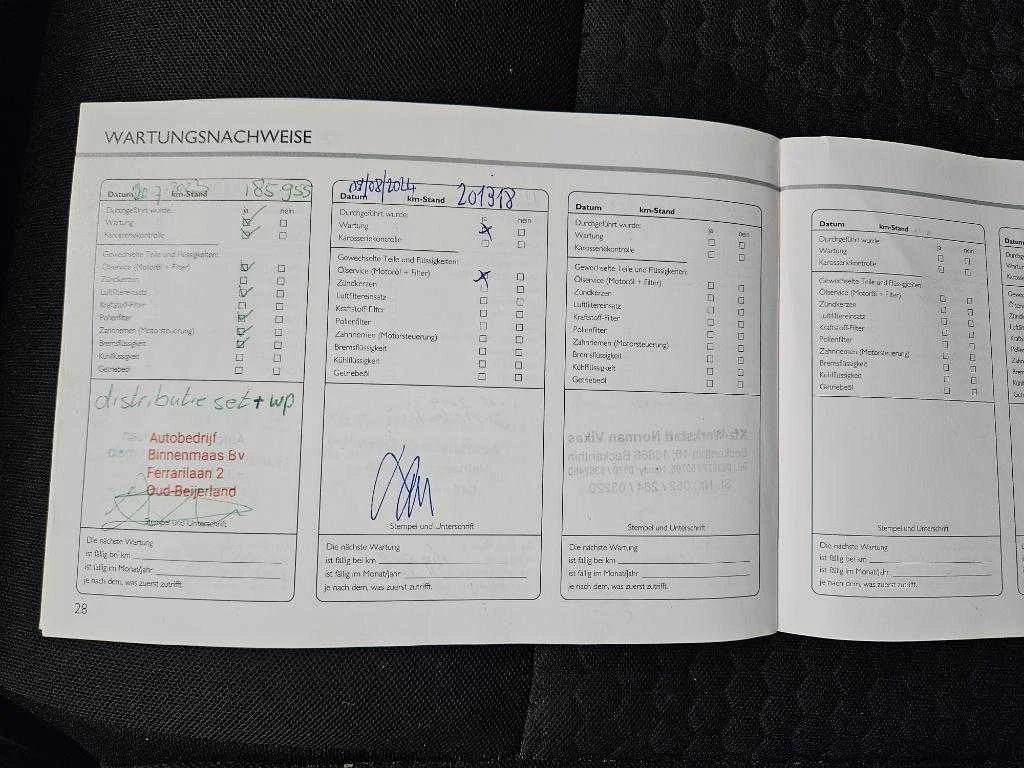 WARTUNGSNACHWEISE
Datum km-Stand 185955
Durchgeführt wurde: ja nein
Wartung
Karosseriekontrolle
Gewechselte Teile und Flüssigkeiten:
Ölservice (Motoröl + Filter)
Zündkerzen
Luftfiltereinsatz
Kraftstoff-Filter
Pollenfilter
Zahnriemen (Motorsteuerung)
Bremsflüssigkeit
Kühlflüssigkeit
Getriebeöl
distributie set + wp
Autobedrijf
Binnenmaas Bv
Ferrarilaan 2
Oud-Beijerland
Stempel und Unterschrift
Die nächste Wartung
ist fällig bei km
ist fällig im Monat/Jahr
je nach dem, was zuerst zutrifft.
28
Datum 09/08/2024 km-Stand 201318
Durchgeführt wurde: ja nein
Wartung
Karosseriekontrolle
Gewechselte Teile und Flüssigkeiten:
Ölservice (Motoröl + Filter)
Zündkerzen
Luftfiltereinsatz
Kraftstoff-Filter
Pollenfilter
Zahnriemen (Motorsteuerung)
Bremsflüssigkeit
Kühlflüssigkeit
Getriebeöl
Stempel und Unterschrift
Die nächste Wartung
ist fällig bei km
ist fällig im Monat/Jahr
je nach dem, was zuerst zutrifft.
Datum km-Stand
Durchgeführt wurde: ja nein
Wartung
Karosseriekontrolle
Gewechselte Teile und Flüssigkeiten:
Ölservice (Motoröl + Filter)
Zündkerzen
Luftfiltereinsatz
Kraftstoff-Filter
Pollenfilter
Zahnriemen (Motorsteuerung)
Bremsflüssigkeit
Kühlflüssigkeit
Getriebeöl
Stempel und Unterschrift
Die nächste Wartung
ist fällig bei km
ist fällig im Monat/Jahr
je nach dem, was zuerst zutrifft.
Datum km-Stand
Durchgeführt wurde: ja nein
Wartung
Karosseriekontrolle
Gewechselte Teile und Flüssigkeiten:
Ölservice (Motoröl + Filter)
Zündkerzen
Luftfiltereinsatz
Kraftstoff-Filter
Pollenfilter
Zahnriemen (Motorsteuerung)
Bremsflüssigkeit
Kühlflüssigkeit
Getriebeöl
Stempel und Unterschrift
Die nächste Wartung
ist fällig bei km
ist fällig im Monat/Jahr
je nach dem, was zuerst zutrifft.
Datum